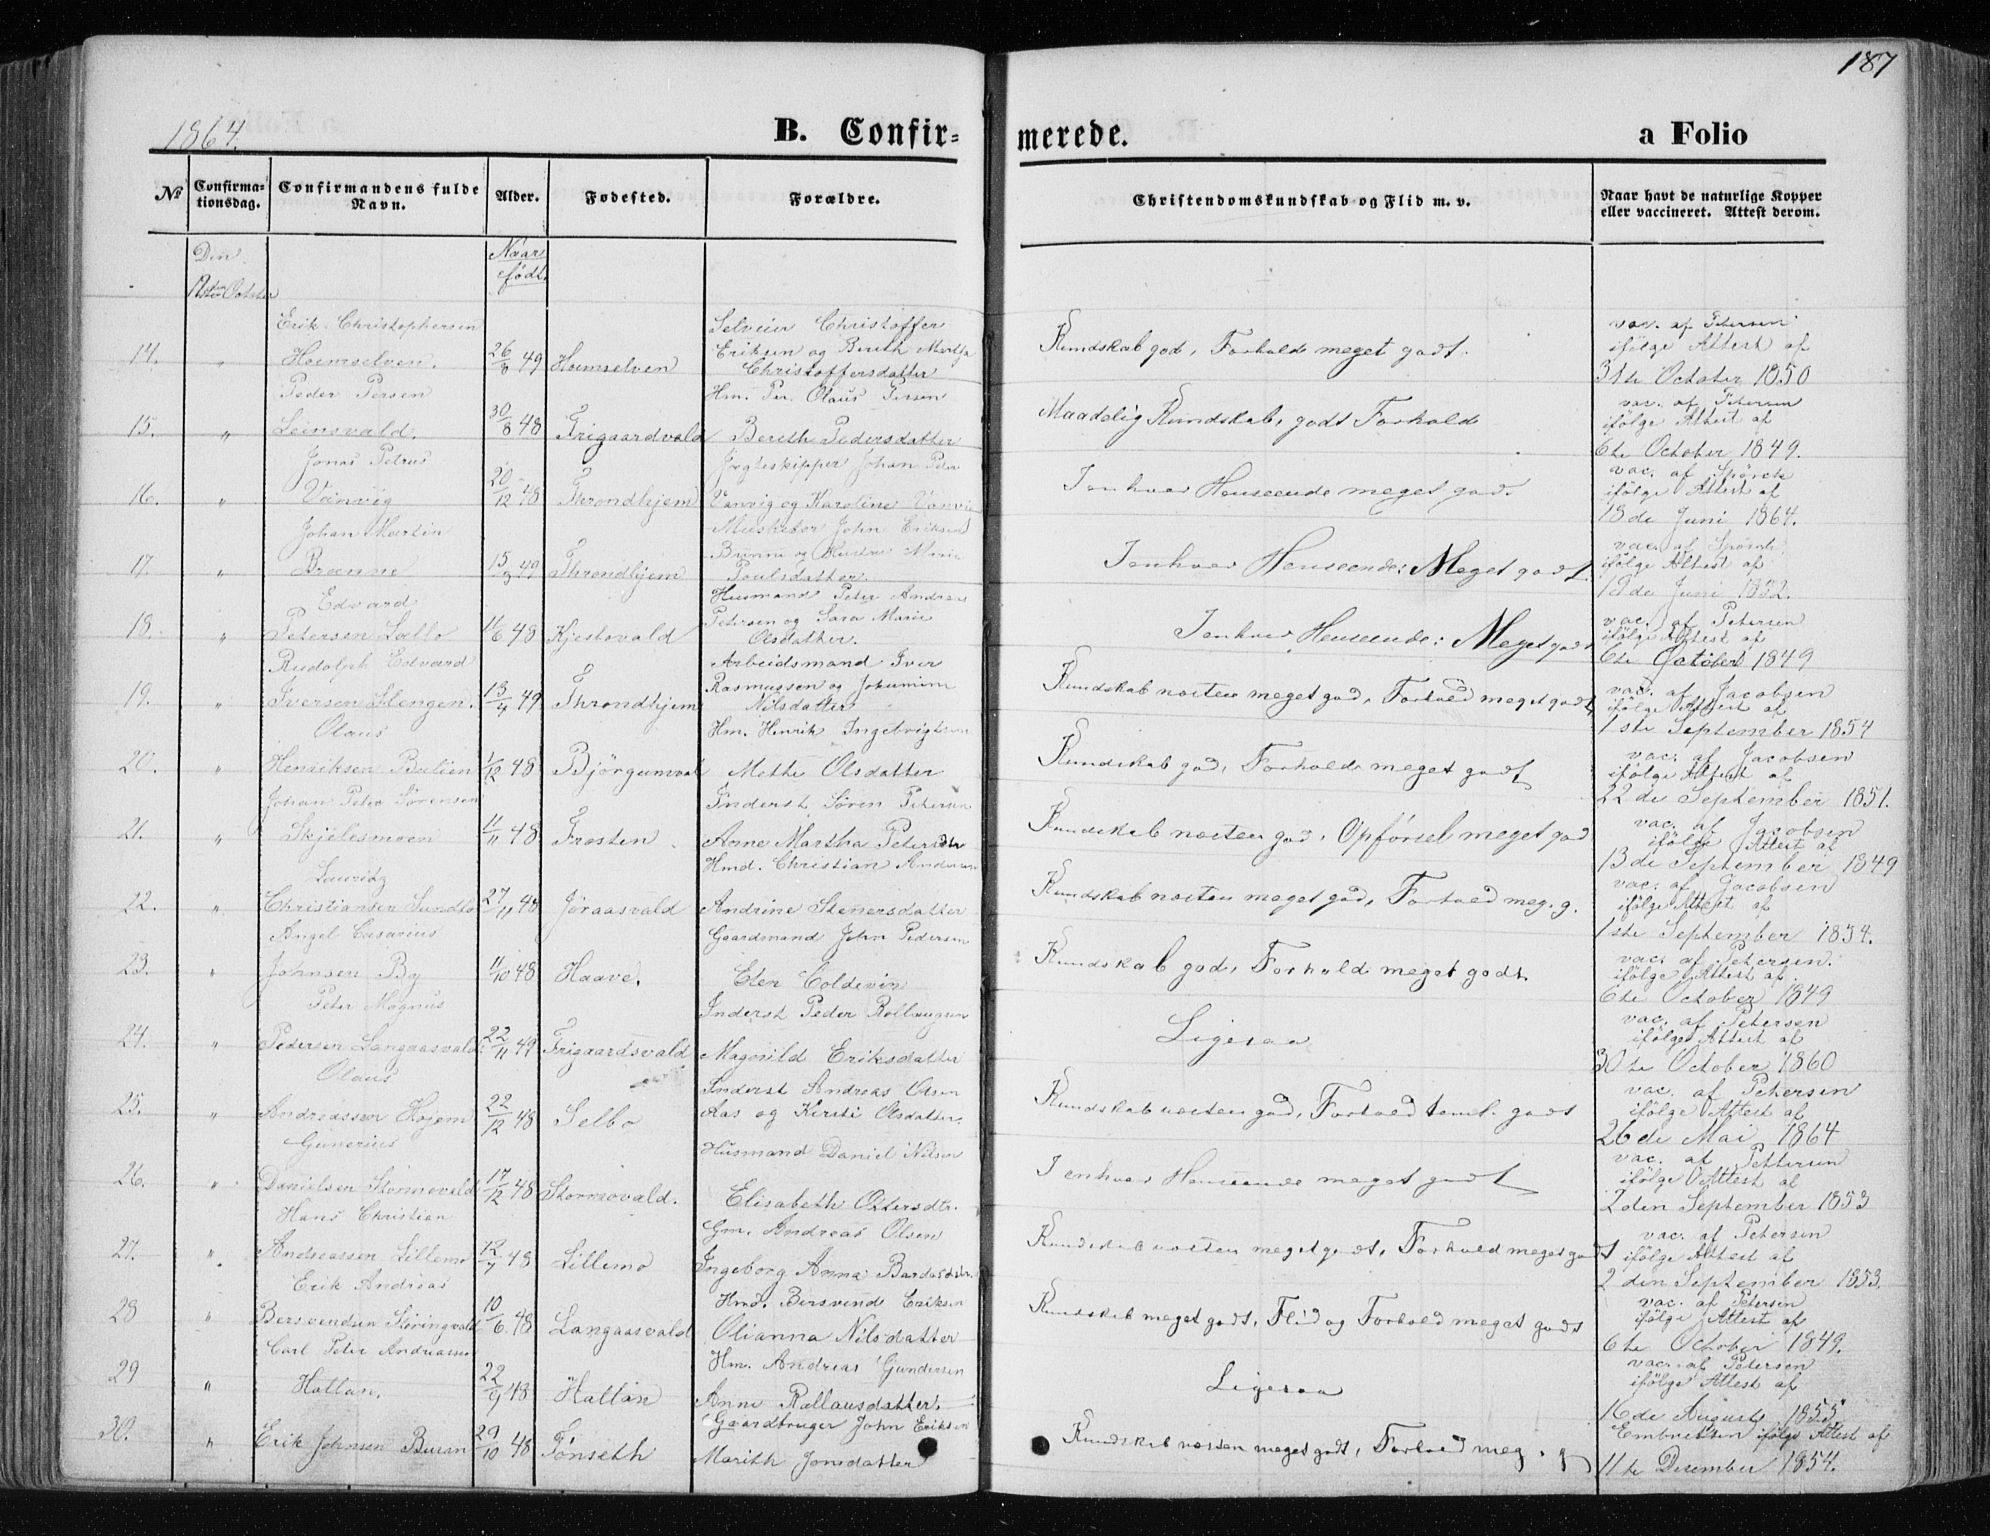 187
1864.
B. Confir-
merede.
a Folio
No
Confirma-
tionsdag.
Confirmandens fulde
Navn.
Alder.
Fødested.
Forældre.
Christendomskundskab og Flid m. v.
Naar havt de naturlige Kopper
eller vaccineret. Attest derom.
Den
October
Naar
født
14. " Erik Christophersen
Hoemselven.
26/8 49
Hoemselven
Selveier Christoffer
Eriksen og Berith Martha
Christoffersdatter
Kundskab god, Forholds meget godt.
vac. af Petersen
ifölge Attest af
31te October 1850
15. " Peder Persen
Leinsvald.
30/8 48
Frigaardvald
Hm. Per Olaus Persen
Berith Pedersdatter
Maadelig Kundskab, godt Forhold
vac. af Petersen
ifölge Attest af
6te October 1849.
16. " Jonas Petrus
Vanvig
20/12 48
Throndhjem
Jægteskipper Johan Peter
Vanvig og Karoline Vanvig
I enhver Henseende meget god.
vac. af Spörck
ifölge Attest af
18de Juni 1864.
17. " Johan Martin
Brænne
15/3 49
Throndhjem
Musketer John Eriksen
Brænne og Hustru Marie
Poulsdatter.
I enhver Henseende: Meget godt.
vac. af Spörck
ifölge Attest af
19de Juni 1852.
18. " Edvard
Petersen Lallo
16/6 48
Kjestovald
Husmand Peter Andreas
Petersen og Sara Marie
Olsdatter.
I enhver Henseende: Meget godt
vac. af Petersen
ifölge Attest af
6te October 1849
19. " Rudolph Edvard
Iversen Stengen.
13/4 49
Throndhjem
Arbeidsmand Iver
Rasmussen og Jokumine
Nilsdatter
Kundskab næsten meget god, Forhold meget godt,
vac. af Jacobsen
ifölge Attest af
1ste September 1854
20. " Olaus
Henriksen Balien
1/12 48
Björgumvald
Hm. Henrik Ingebrigtsen
Mette Olsdatter
Kundskab god, Forholds meget godt
vac. af Jacobsen
ifölge Attest af
22de September 1851.
21. " Johan Peter Sørensen
Skjelesmoen
11/11 48
Frosten
Inderst Sören Petersen
Anne Martha Petersdtr
Kundskab næsten god, Opförsel meget god
vac. af Jacobsen
ifölge Attest af
13de September 1849
22. " Lauridz
Christiansen Sundlo
27/11 48
Jøraasvald
Hmd. Christian Andersen
Andrine Stenersdatter
Kundskab næsten meget god, Forhold meg. g.
vac. af Jacobsen
ifölge Attest af
1ste September 1854.
23. " Angel Casarius
Johnsen By
11/10 48
Haave.
Gaardmand John Pedersen
Elen Coldevin
Kundskab god, Forhold meget godt.
vac. af Petersen.
ifölge Attest af
6te October 1849
24. " Peter Magnus
Pedersen Langaasvald
22/11 49
Frigaardsvald
Inderst Peder Rollaugsen
Magnild Eriksdatter
Ligesaa
vac. af Petersen
ifölge Attest af
30te October 1860
25. " Olaus
Andreassen Hojem
22/12 48
Selbo
Inderst Andreas Olsen
Aas og Kirsti Olsdatter.
Kundskab næsten god, Forhold teml. godt
vac. af Petersen
ifölge Attest af
26de Mai 1864
26. " Gunerius
Danielsen Stormovald
17/12 48
Stormovald.
Husmand Daniel Nilsen
Elisabeth Ostersdtr.
I enhver Henseende meget godt
vac. af Pettersen
ifölge Attest af
2den September 1853
27. " Hans Christian
Andreassen Lillemo
12/7 48
Lillemo
Gm. Andreas Olsen
Ingeborg Anna Bardosdatter
Kundskab næsten meget godt, Forhold meget godt
vac. af Petersen
ifölge Attest af
2den September 1853.
28 " Erik Andreas
Bersvendsen Störingvald
10/6 48
Langaasvald
Hmd. Bersvend Eriksen
Olianna Nilsdatter
Kundskab meget godt, Flid og Forhold meget godt
vac. af Petersen
ifölge Attest af
6te October 1849.
29 " Carl Peter Andreassen
Hallan.
22/9 48
Hallan
Hm. Andreas Gundersen
Anne Rallausdatter.
Ligesaa
vac. af Petersen
ifölge Attest af
16de August 1855
30. " Erik Johnsen Buran
29/10 48
Fönseth
Gaardbruger John Eriksen
Marith Jonsdatter
Kundskab næsten meget godt, Forhold meg. g
Embretsen ifölge Attest af
11te December 1854.